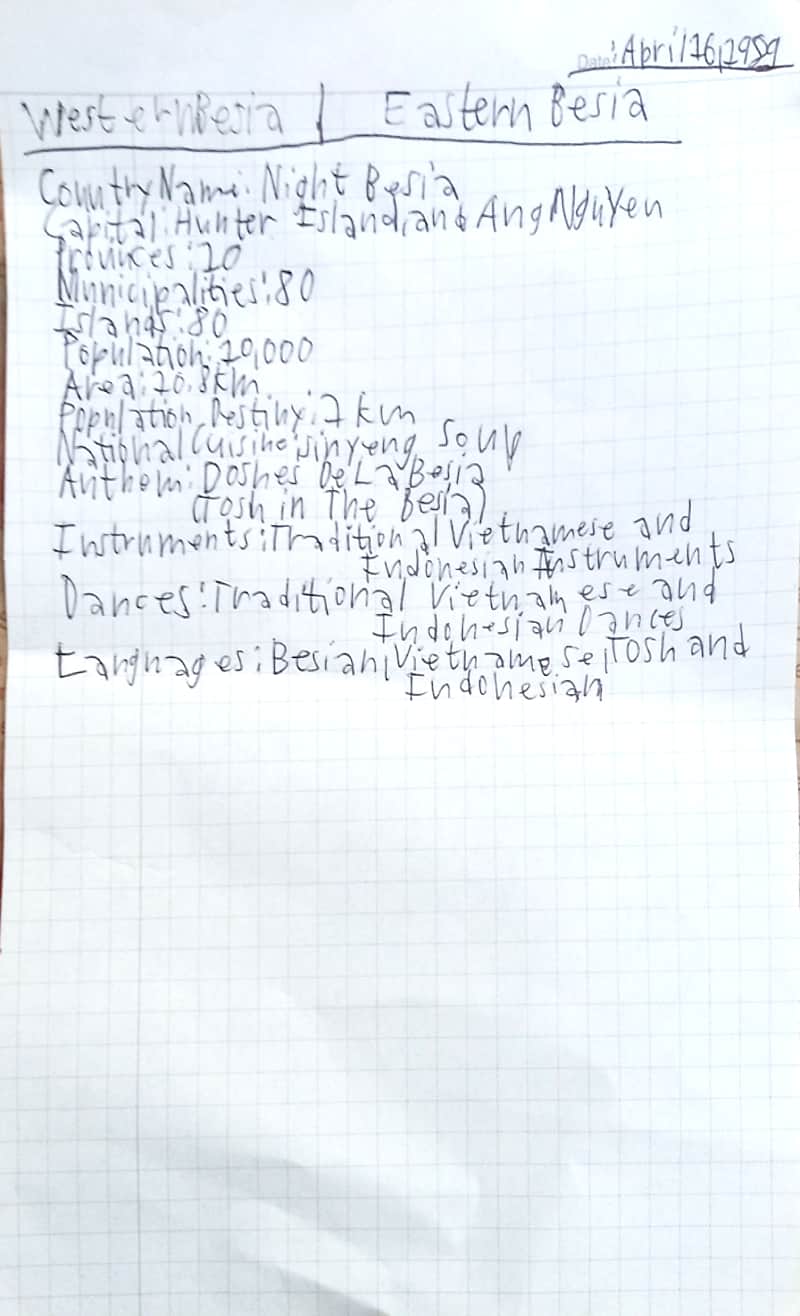 Date: April 16, 1989
Western Besia | Eastern Besia
Country Name: Night Besia
Capital: Hunter Island, and Ang Nguyen
Provinces: 20
Municipalities: 80
Islands: 80
Population: 20,000
Area: 20.8km
Population Destiny: 7 km
National Cuisine: Jinyeng Soup
Anthem: Doshes De La Besia
(Tosh in The Besia)
Instruments: Traditional Vietnamese and
Indonesian Instruments
Dances: Traditional Vietnamese and
Indonesian Dances
Languages: Besian, Vietnamese, Tosh and
Indonesian